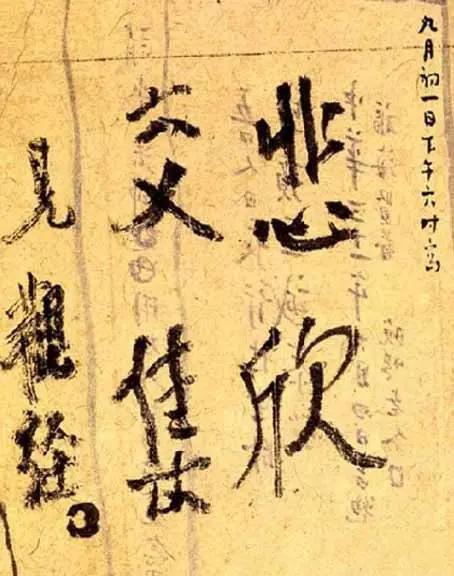 九月初一日下午六时寫
悲欣
交集
見觀經